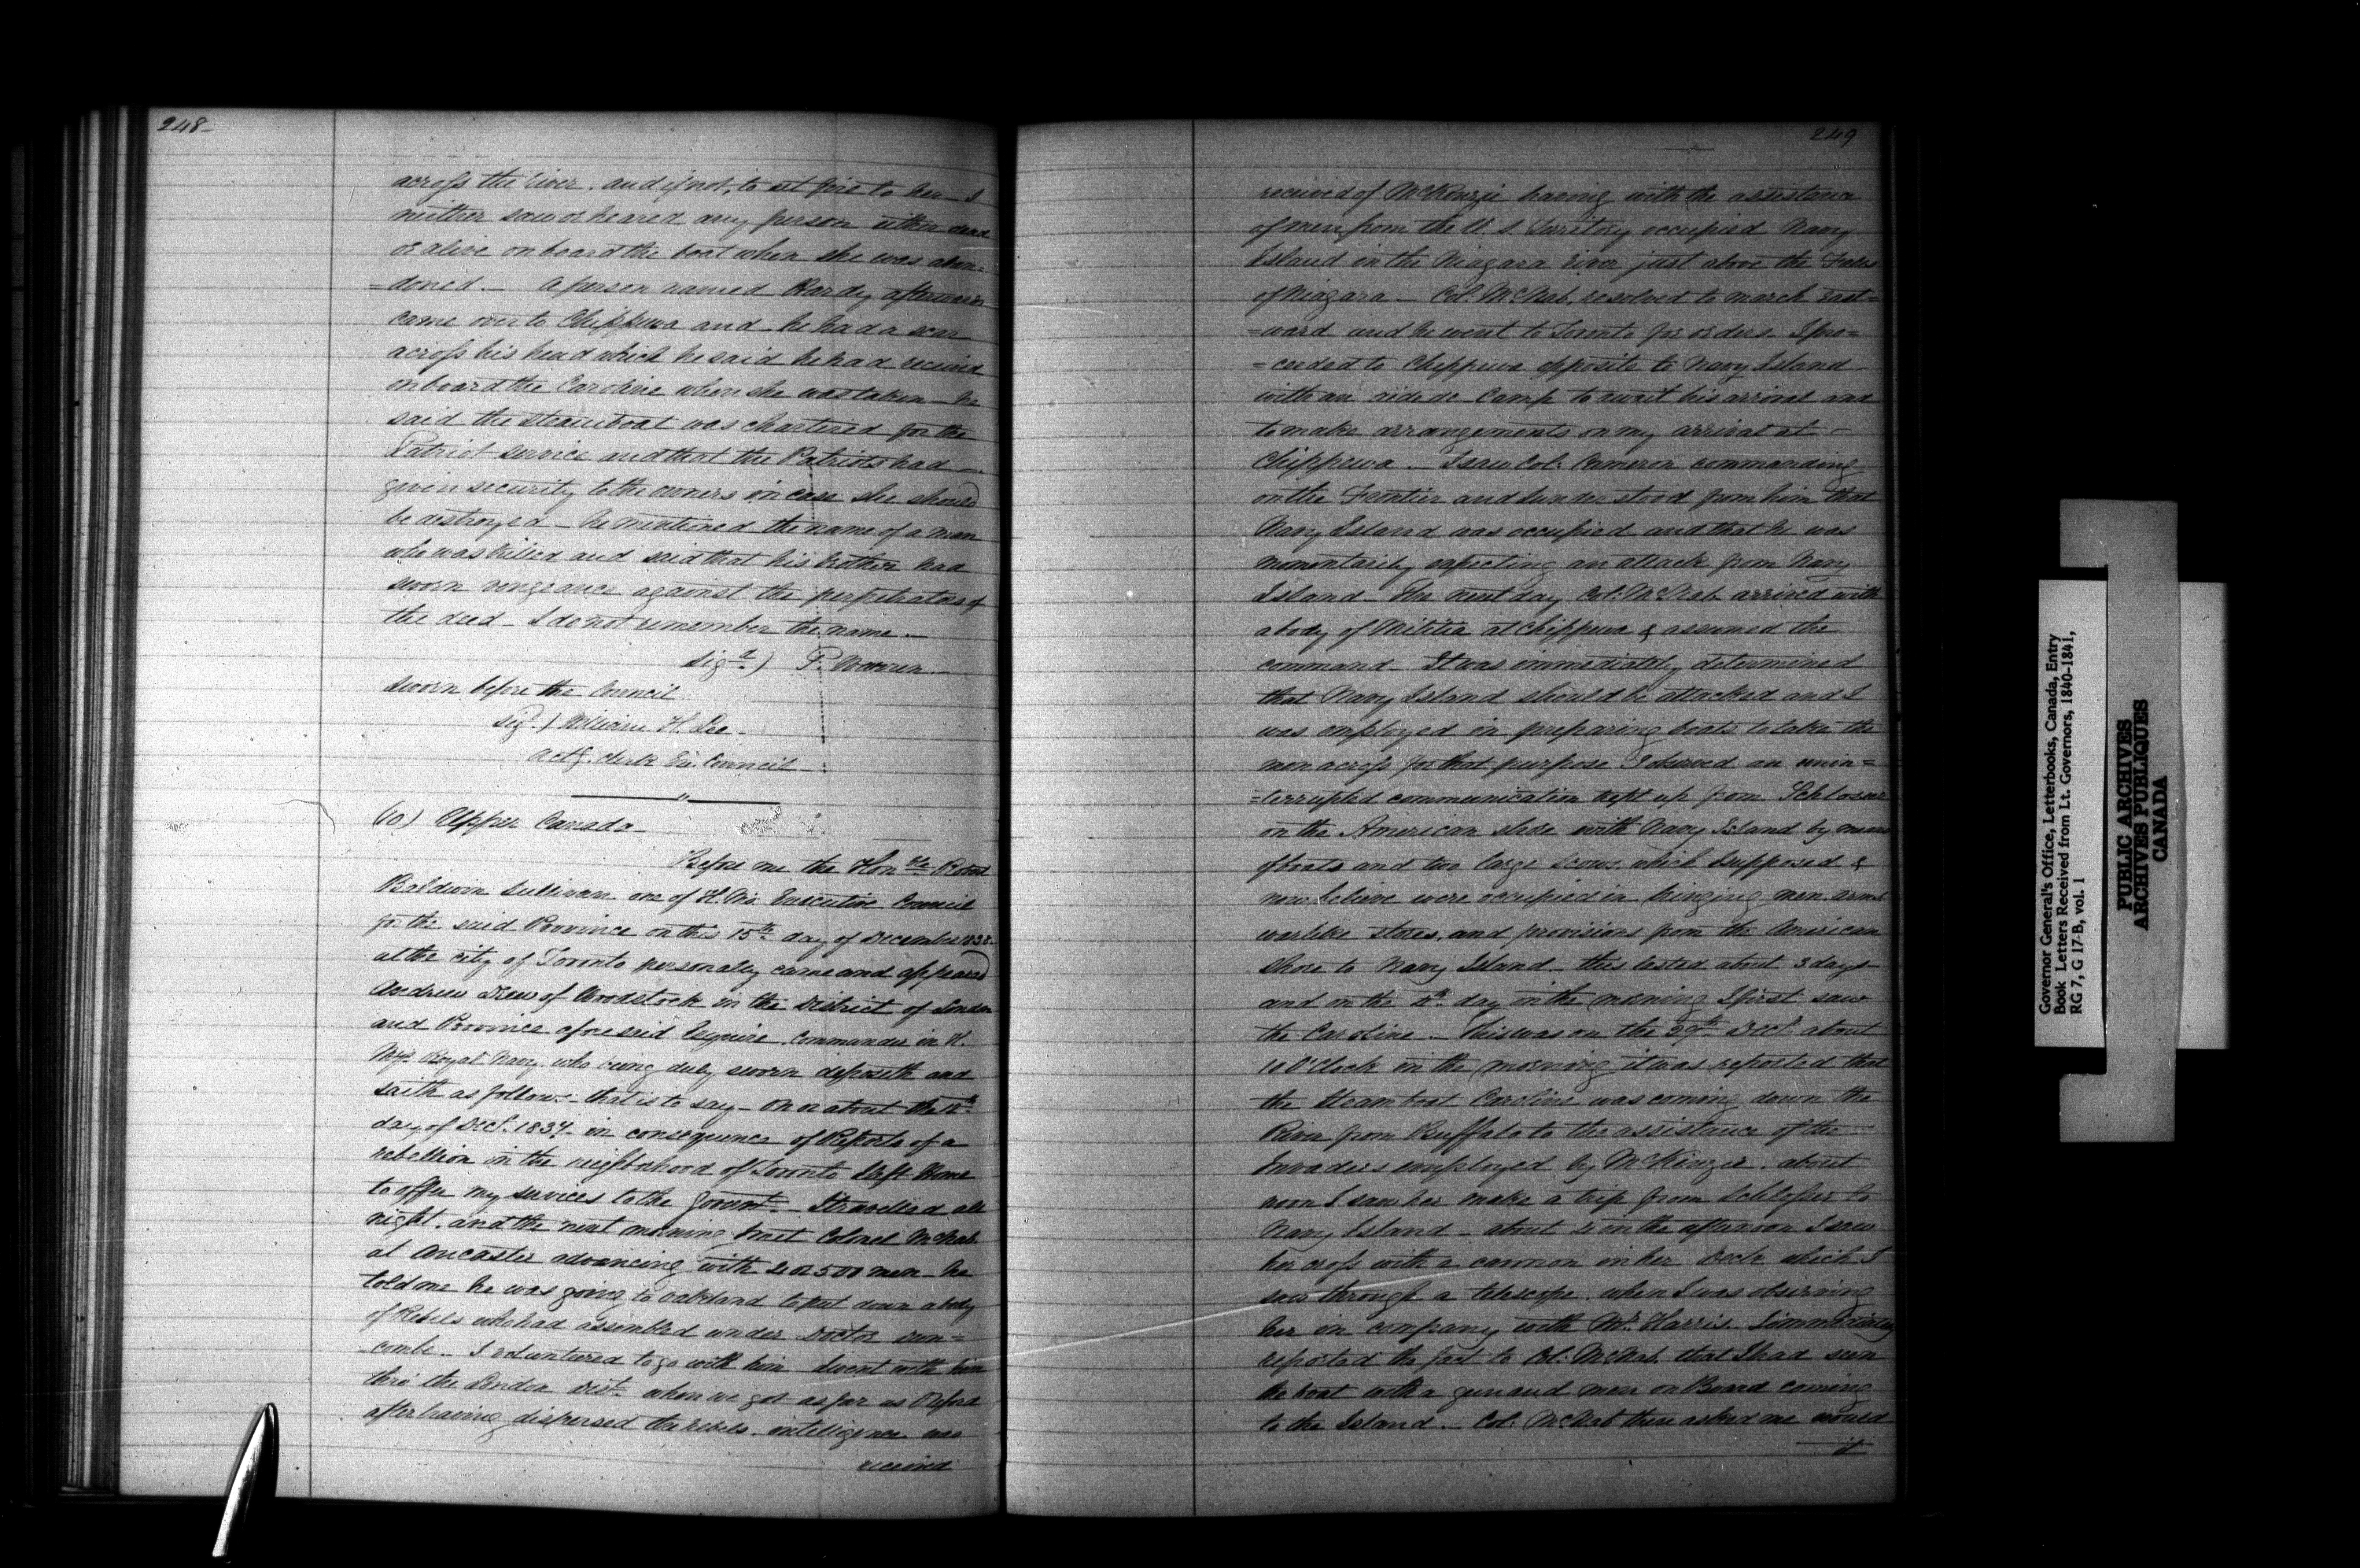 248-
across the river, and if not, to set fire to her - I
neither saw or heared any person either dead
or alive on board the boat when she was aban=
=doned. - A person named Hardy afterwards
came over to Chippewa and he had a scar
across his head which he said he had received
on board the Caroline when she was taken - he
said the steamboat was chartered for the
Patriot service and that the Patriots had -
given security to the owners in case she should
be destroyed - he mentioned the name of a man
who was killed and said that his brother had
sworn vengeance against the perpetrators of
the deed - I do not remember the name. -
Sigd.) P. Warren
Sworn before the Council
Sigd.) William H. Lee.
actg. clerk Ex. Council
(10) Upper Canada -
Before me the Honble Robert
Baldwin Sullivan one of H. Ms Executive Council
for the said Province on this 15th day of December 1838
at the city of Toronto personally came and appeared
Andrew Drew of Woodstock in the District of London
and Province aforesaid Esquire, Commander in H.
Mys Royal Navy who being duly sworn deposeth and
saith as follows - that is to say - On or about the 12th
day of Dect. 1837. in consequence of Reports of a
rebellion in the neighborhood of Toronto I left Home
to offer my services to the Govmt. - I travelled all
night, and the next morning met Colonel McNab
at Ancaster advancing with 4 or 500 men - he
told me he was going to Oakland to put down a body
of Rebels who had assembled under Doctor Dun=
=combe. - I volunteered to go with him I went with him
thro' the London Dist. when we got as far as Oxford
after having dispersed the rebels, intelligence was
received
249
received of McKenzie having with the assistance
of men from the U. S. Territory occupied Navy
Island in the Niagara river just above the Falls
of Niagara. - Col: McNab, resolved to march East=
=ward and he went to Toronto for orders I pro=
=ceeded to Chippewa opposite to Navy Island
with an aide de Camp to await his arrival and
to make arrangements on my arrival at -
Chippewa. - I saw Col: Cameron commanding
on the Frontier and I understood from him that
Navy Island was occupied and that he was
momentarily expecting an attack from Navy
Island - The next day Col: McNab arrived with
a body of Militia at Chippewa & assumed the
command - It was immediately determined
that Navy Island should be attacked and I
was employed in preparing boats to take the
men across for that purpose I observed an unin=
=terrupted communication kept up from Schlosser
on the American shore with Navy Island by means
of boats and two large scows which I supposed &
now believe were occupied in bringing men arms
warlike stores, and provisions from the American
Shore to Navy Island - this lasted about 3 days -
and on the 4th day in the morning I first saw
the Caroline - This was on the 29th Dect. about
10 O'Clock in the morning it was reported that
the Steam boat Caroline was coming down the
River from Buffalo to the assistance of the -
Invaders employed by McKenzie. about
noon I saw her make a trip from Schlosser to
Navy Island - about 4 in the afternoon I saw
her cross with a cannon in her Deck which I
saw through a telescope, when I was observing
her in company with Mr. Harris. I immediately
reported the fact to Col: McNab, that I had seen
the boat with a gun and men on Board coming
to the Island. - Col: McNab then asked me would
it
Governor General's Office, Letterbooks, Canada, Entry
Book Letters Received from Lt. Governors, 1840-1841,
RG 7, G 17 B, vol. 1
PUBLIC ARCHIVES
ARCHIVES PUBLIQUES
CANADA